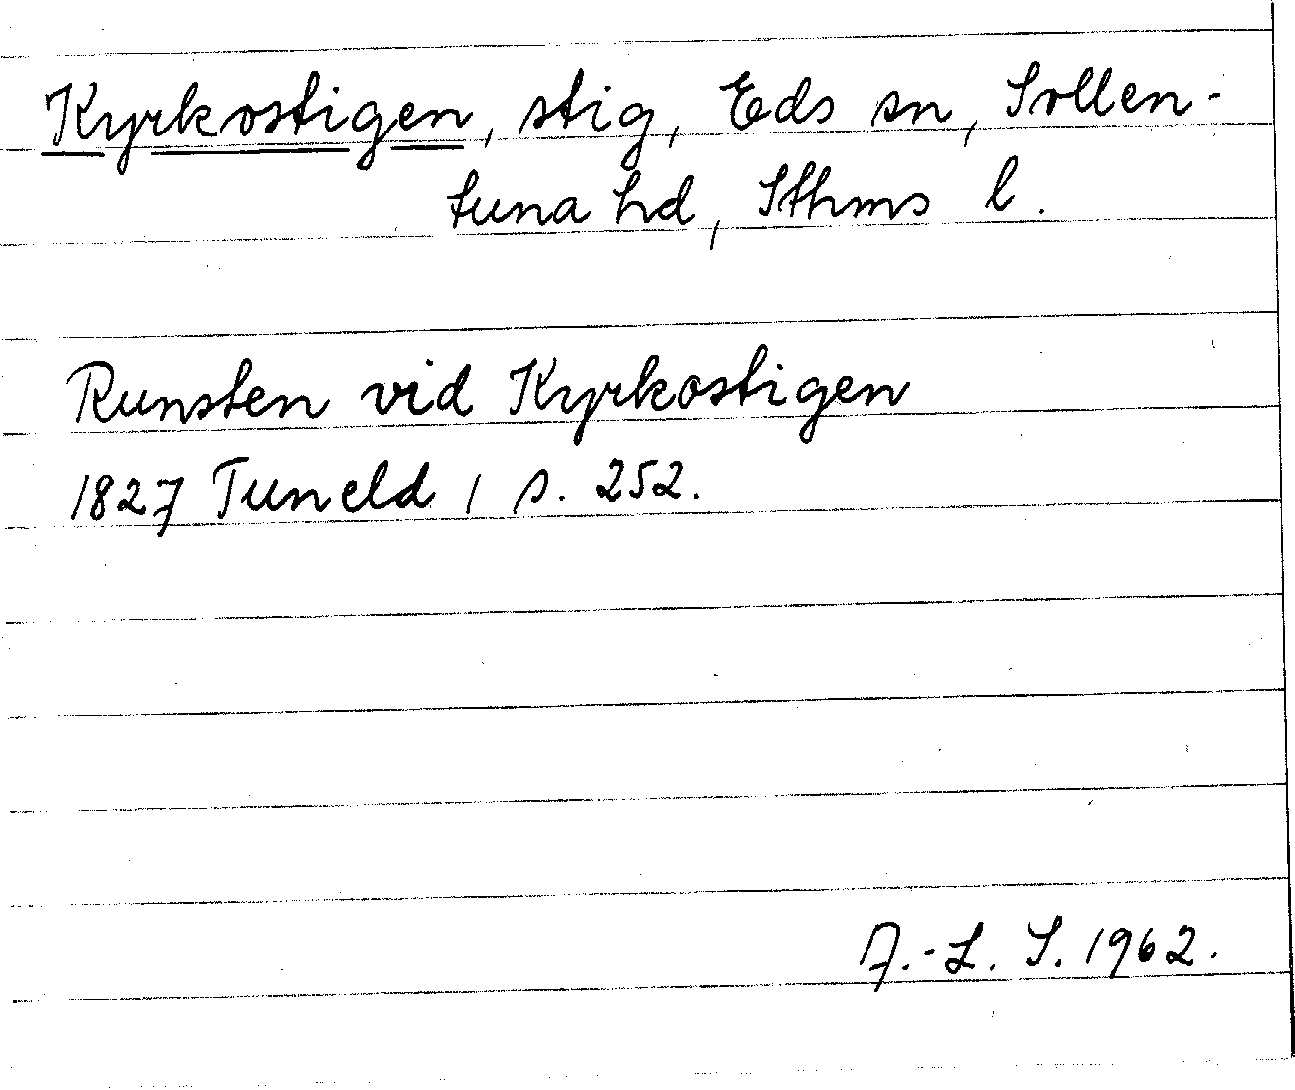 Kyrkostigen, stig, Eds sn, Sollen-
tuna hd, Sthms l.
Runsten vid Kyrkostigen
1827 Tuneld 1 s. 252.
A.-L. S. 1962.